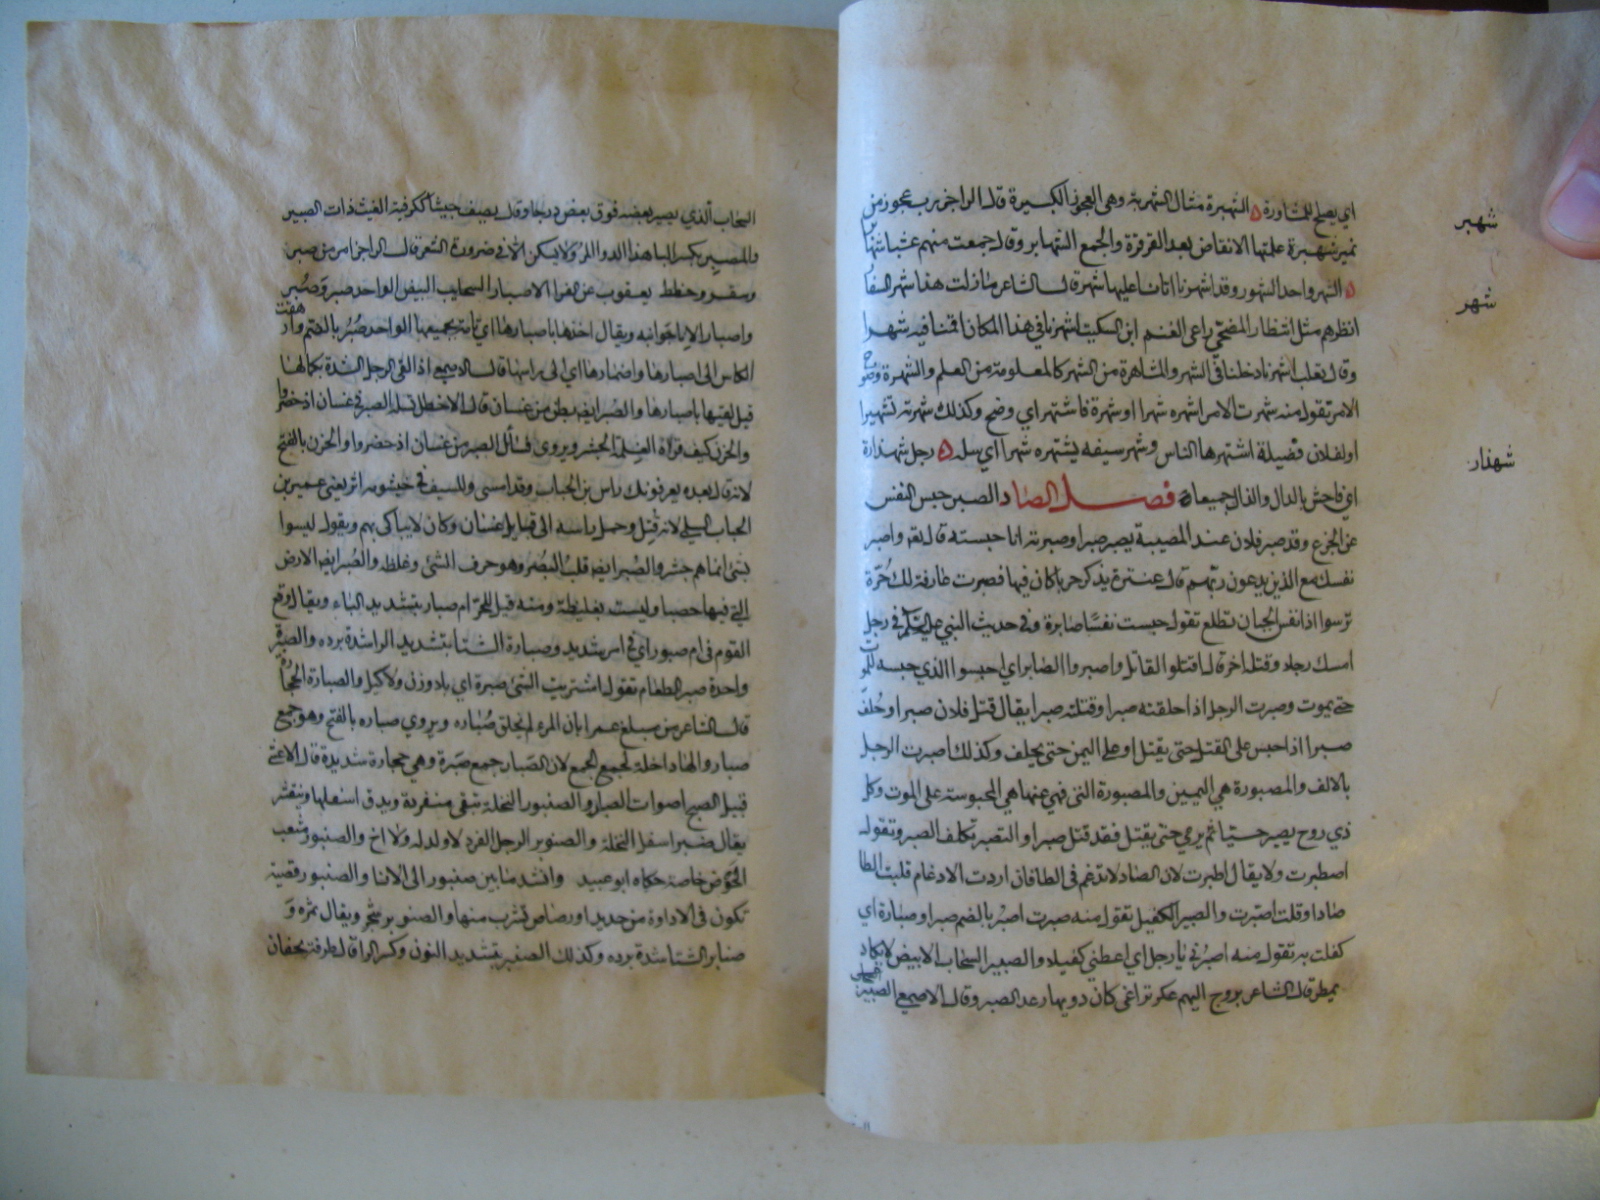 اي يصلح للمشاورة ه الشهبرة مثال الشهربة وهي العجوز الكبيرة قال الراجز رب عجوز من
شهبر
نمير شهبرة علمتها الانقاض بعد القرقرة والجمع الشهابر وقال جمعت منهم عشبا شهابر
ه الشهر واحد الشهور وقد اشهرنا اتانا عليها شهر قال الشاعر ما زلت هذا شهر الشفار
شهر
انظرهم مثل انتظار المضحي راعي الغنم ابن السكيت اشهرنا في هذا المكان اقمنا فيه شهرا
وقال ثعلب اشهرنا دخلنا في الشهر والمشاهرة من الشهر كالمعاومة من العلم والشهرة وضوح
الامر تقول منه شهرت الامر اشهره شهرا او شهرة فاشتهر اي وضح وكذلك شهرته تشهيرا
او لفلان فضيلة اشتهرها الناس وشهر سيفه يشتهره شهرا اي سله ه رجل شهذارة
شهذار
اي فاحش بالدال والذال جميعا ه فصل الصاد الصبر حبس النفس
عن الجزع وقد صبر فلان عند المصيبة يصبر صبرا وصبرته انا حبسته قال تعالى واصبر
نفسك مع الذين يدعون ربهم قال عنترة يذكر حربا كان فيها فصبرت عارفة لذلك حرة
ترسوا اذا نفس الجبان تطلع تقول حبست نفسا صابرة وفي حديث النبي عليه السلم في رجل
امسك رجلا وقتله اخر قال اقتلوا القاتل واصبروا الصابر اي احبسوا الذي حبسه للموت
حتى يموت وصبرت الرجل اذا احلفته صبرا وقتلته صبرا يقال قتل فلان صبرا وحلف
صبرا اذا حبس على القتل حتى يقتل او على اليمين حتى يحلف وكذلك اصبرت الرجل
بالالف والمصبورة هي اليمين والمصبورة التي نهي عنها هي المحبوسة على الموت وكل
ذي روح يصبر حيا ثم يرمي حتى يقتل فقد قتل صبرا والتصبر تكلف الصبر وتقول
اصطبرت ولا يقال اطبرت لان الصاد لا تدغم في الطا فان اردت الادغام قلبت الطا
صادا وقلت اصبرت والصبير الكفيل تقول منه صبرت اصبر بالضم صبرا وصبارة اي
كفلت به تقول منه اصبرني يا رجل اي اعطني كفيلا والصبير السحاب الابيض لا يكاد
يمطر قال الشاعر يروح اليهم عكر تراغى كان دويها رعد الصبير وقال الاصمعي الصبير
السحاب الذي يصير بعضه فوق بعض درجا وقال يصف جيشا ككرفئة الغيث ذات الصبير
والصبر بكسر البا هذا الدوا المر ولا يسكن الا في ضرورة الشعر قال الراجز امر من صبر
ومقر وحظظ يعقوب عن الفرا الاصبار السحايب البيض الواحد صبر وصبر
واصبار الانا جوانبه ويقال اخذها باصبارها اي تامة بجميعها الواحد صبر بالضم
الكاس الى اصبارها واصمارها اي الى راسها قال الاصمعي اذا لقي الرجل الشدة بكمالها
قيل لقيها باصبارها والصبر ايضا بطن من غسان قال الاخطل تسله الصبر في غسان اذ حضروا
والحزن كيف قراه الغلمة الجشر ويروى فسائل الصبر من غسان اذ حضروا والحزن بالفتح
لانه قال بعده يعرفونك راس بن الحباب وقد امسى وللسيف في خيشومه اثر يعني عمير بن
الحباب السلمي لانه قتل وحمل راسه الى قبايل غسان وكان لا يبالي بهم ويقول ليسوا
بشئ انما هم جشر والصبر ايضا قلب البصر وهو حرف الشئ وغلظه والصبر ايضا الارض
التي فيها حصبا وليست بغليظة ومنه قيل للحرة ام صبار بتشديد الباء ويقال وقع
القوم في ام صبور اي في امر شديد وصبارة الشتا بتشديد الرا شدة برده والصبرة
واحدة صبر الطعام تقول اشتريت الشئ صبرة اي بلا وزن ولا كيل والصبارة الحجارة
قال الشاعر من مبلغ عمرا بان المرء لم يخلق صباره ويروي صباره بالفتح وهو جمع
صبار والها داخلة لجمع الجمع لان الصبار جمع صبرة وهي حجارة شديدة قال الاعشى
قبيل الصبح اصوات الصبار والصنبور النخلة تبقى منفردة ويدق اسفلها وينقشر
يقال صنبر اسفل النخلة والصنوبر الرجل الفرد لا ولد له ولا اخ والصنبور مثعب
الحوض خاصة حكاه ابو عبيد وانشد ما بين صنبور الى الانا والصنبور قصبة
تكون في الاداوة من حديد او رصاص تشرب منها والصنوبر شجر ويقال ثمره و
صنابر الشتا شدة برده وكذلك الصنبر بتشديد النون وكسر الرا قال طرفة بجفان